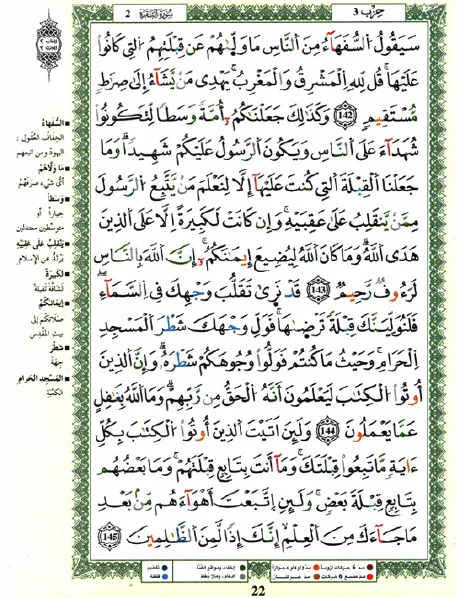 حِزْب 3
سُورَةُ البَقَرَة 2
سَيَقُولُ السُّفَهَآءُ مِنَ النَّاسِ مَا وَلّٰىهُمْ عَن قِبْلَتِهِمُ الَّتِي كَانُوا
عَلَيْهَا قُل لِّلهِ الْمَشْرِقُ وَالْمَغْرِبُ يَهْدِي مَنْ يَّشَآءُ اِلَىٰ صِرَٰطٍ
مُّسْتَقِيمٍ 142 وَكَذَٰلِكَ جَعَلْنَٰكُمُۥٓ أُمَّةً وَسَطًا لِّتَكُونُوا
شُهَدَآءَ عَلَى النَّاسِ وَيَكُونَ الرَّسُولُ عَلَيْكُمْ شَهِيدًا وَمَا
جَعَلْنَا الْقِبْلَةَ الَّتِي كُنتَ عَلَيْهَآ إِلَّا لِنَعْلَمَ مَنْ يَّتَّبِعُ الرَّسُولَ
مِمَّنْ يَّنقَلِبُ عَلَىٰ عَقِبَيْهِ وَإِن كَانَتْ لَكَبِيرَةً اِلَّا عَلَى الَّذِينَ
هَدَى اللَّهُ وَمَا كَانَ اللَّهُ لِيُضِيعَ إِيمَٰنَكُمُۥٓ إِنَّ اللَّهَ بِالنَّاسِ
لَرَءُوفٌ رَّحِيمٌ 143 قَدْ نَرَىٰ تَقَلُّبَ وَجْهِكَ فِي السَّمَآءِ
فَلَنُوَلِّيَنَّكَ قِبْلَةً تَرْضَىٰهَا فَوَلِّ وَجْهَكَ شَطْرَ الْمَسْجِدِ
الْحَرَامِ وَحَيْثُ مَا كُنتُمْ فَوَلُّوا وُجُوهَكُمْ شَطْرَهُۥ وَإِنَّ الَّذِينَ
أُوتُوا الْكِتَٰبَ لَيَعْلَمُونَ أَنَّهُ الْحَقُّ مِن رَّبِّهِمْ وَمَا اللَّهُ بِغَٰفِلٍ
عَمَّا يَعْمَلُونَ 144 وَلَئِنَ اَتَيْتَ الَّذِينَ أُوتُوا الْكِتَٰبَ بِكُلِّ
ءَايَةٍ مَّا تَبِعُوا قِبْلَتَكَ وَمَآ أَنتَ بِتَابِعٍ قِبْلَتَهُمْ وَمَا بَعْضُهُم
بِتَابِعٍ قِبْلَةَ بَعْضٍ وَلَئِنِ اِتَّبَعْتَ أَهْوَآءَهُم مِّنۢ بَعْدِ
مَا جَآءَكَ مِنَ الْعِلْمِ إِنَّكَ إِذًا لَّمِنَ الظَّٰلِمِينَ 145
السُّفَهَاءُ
الخِفَافُ العُقُولِ :
اليهودُ ومن اتبعهم
مَا وَلَّاهُمْ
أيُّ شيءٍ صَرَفَهُمْ
وَسَطًا
خِيَارًا أو
متوسطين معتدلين
يَنْقَلِبُ عَلَى عَقِبَيْهِ
يَرْتَدُّ عن الإسلام
لَكَبِيرَةً
لَشَاقَّةً ثقيلة
إِيمَانَكُمْ
صَلَاتَكُم إلى
بيتِ المَقْدِس
شَطْرَ
جِهَةَ
المَسْجِدِ الحَرَامِ
الكَعْبَة
22